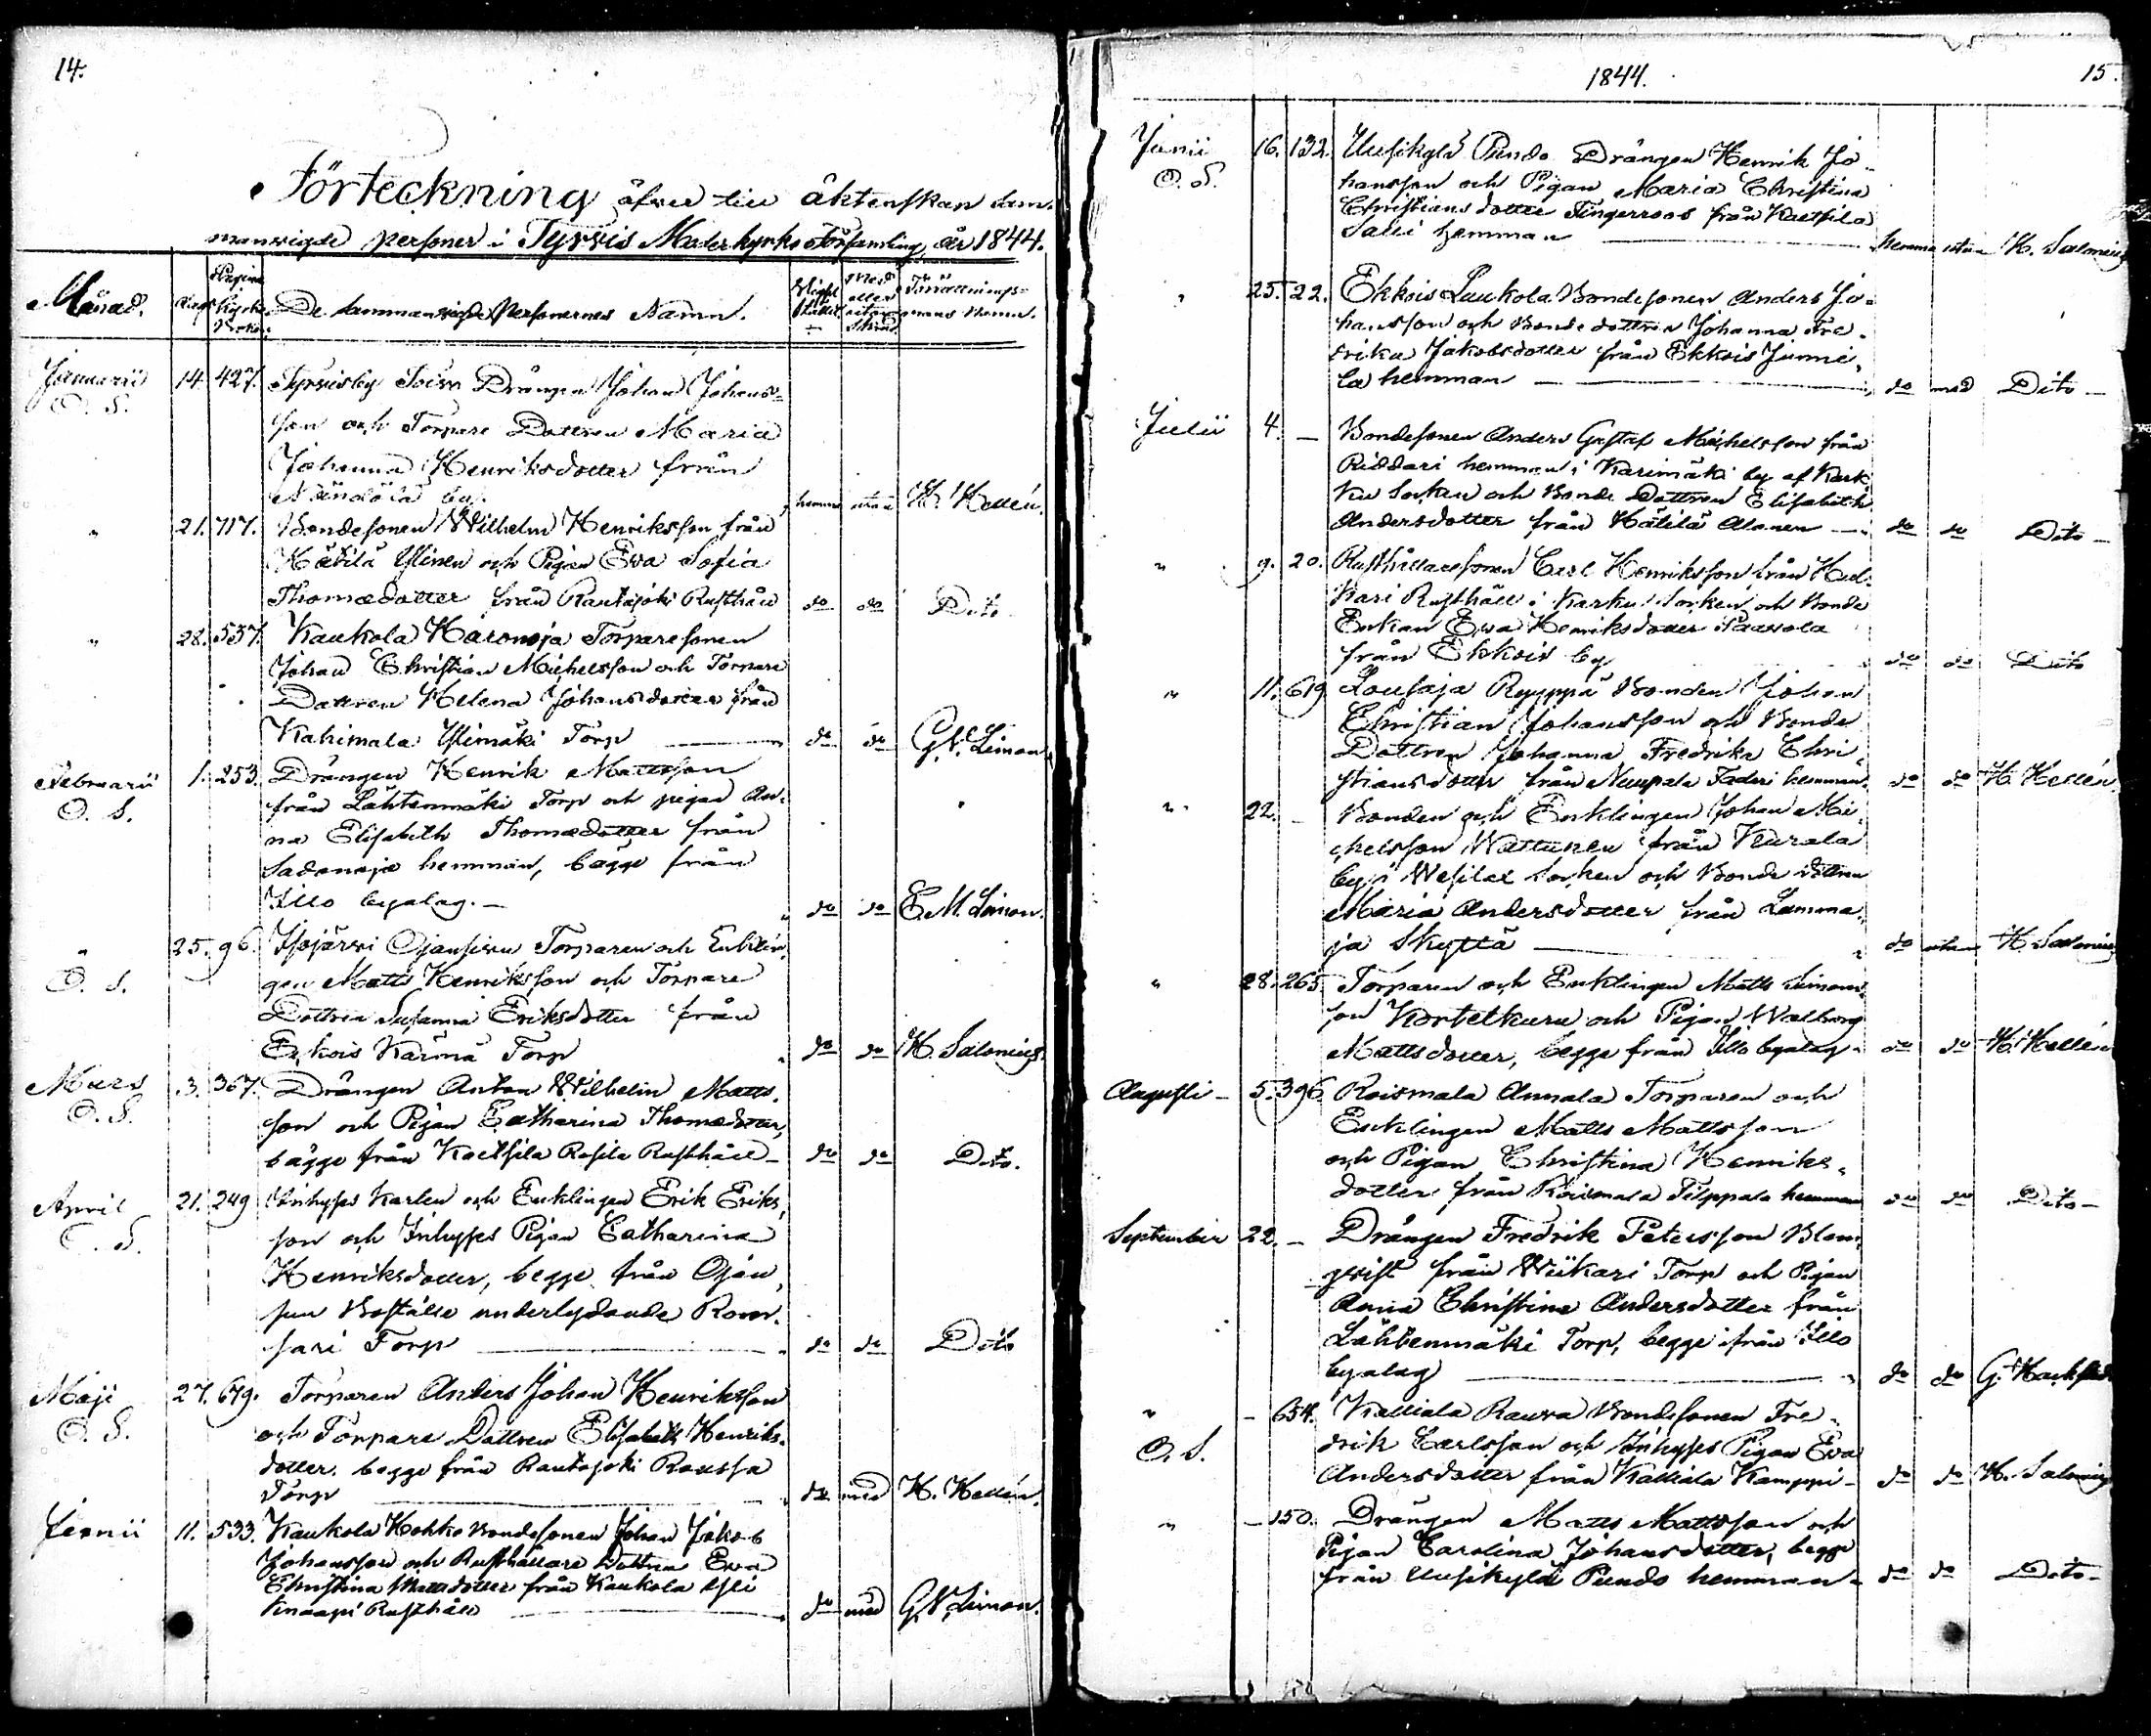 14.
Förteckning öfver till äktenskap sam-
manvigde personer i Tyrvis Moderkyrko Församling, år 1844.
Månad. dag Pagina Kyrko Boken De sammanvigde Personernes Namn. Vigsel stället Med eller utan Skrud Förrättnings-mans Namn.
Januarii 14. 427. Tyrvisby Drängen Johan Johans-
O. S.
son och Torpare Dottren Maria
Johanna Henriksdotter från
by hemma utan H. Hellén.
" 21. 717. Bondesonen Wilhelm Henriksson från
Hätilä Ylinen och Pigan Eva Sofia
Thomædotter från Rautajoki Rusthåll do do Dito
" 28. 537. Kaukola Haronoja Torparesonen
Johan Christian Michelsson och Torpare
Dottren Helena Johansdotter från
Kahimala Ylimäki Torp do do G. N. Liman
Februarii 1. 253. Drängen Henrik Mattsson
O. S.
från Lähteenmäki Torp och pigan An-
na Elisabeth Thomædotter från
Sadanoja hemman, bägge från
Illo byalag. do do E. M. Liman.
" 25. 96. Isojärvi Ojansivu Torparen och Enklin-
O. S.
gen Matts Henriksson och Torpare
Dottren Susanna Eriksdotter från
Ekkois Kärmä Torp do do H. Salonius.
Mars 3. 367. Drängen Anton Wilhelm Matts-
O. S.
son och Pigan Catharina Thomædotter,
bägge från Kaltsila Rusthåll do do Dito.
April 21. 249 Inhyses Karlen och Enklingen Erik Eriks-
O. S.
son och Inhyses Pigan Catharina
Henriksdotter, begge från Ojan-
suu Boställe underlydande
Torp do do Dito
Maji 27. 679. Torparen Anders Johan Henriksson
O. S.
och Torpare Dottren Elisabeth Henriks-
dotter begge från Rautajoki
Torp do med H. Hellén.
Junii 11. 533. Kaukola Hohko Bondesonen Johan Jakob
Johansson och Rusthållare Dottren Eva
Christina Mattsdotter från Kaukola Yli
Knaapi Rusthåll do med G. N. Liman.
1844. 15.
Junii 16. 132. Uusikylä Pundo Drängen Henrik Jo-
O. S.
hansson och Pigan Maria Christina
Christiansdotter Tingerroos från Kaltsila
Salli hemman hemma utan H. Salonius
" 25. 22. Ekkois Laukola Bondesonen Anders Jo-
hansson och Bonde dottren Johanna Fre-
drika Jakobsdotter från Ekkois Junni-
la hemman do med Dito
Julii 4. – Bondesonen Anders Gustaf Michelsson från
Riddari hemman i Karimäki by af Kark-
ku Socken och Bonde Dottren Elisabeth
Andersdotter från Hätilä Alanen do do Dito
" 9. 20. Rusthållaresonen Carl Henriksson från
Rusthåll i Karku Socken och Bonde
Enkan Eva Henriksdotter Paavola
från Ekkois by do do Dito
" 11. 619 Lousaja Ryyppä Bonden Johan
Christian Johansson och Bonde
Dottren Johanna Fredrika Chri-
stiansdotter från Nuupala hemman do do H. Hellén
" 22. – Bonden och Enklingen Johan Mi-
chelsson Wattunen från Kurala
by i Wesilax Socken och Bonde dottren
Maria Andersdotter från Lamma-
ja Skyttä do utan H. Salonius
" 28. 265. Torparen och Enklingen Matts Simons-
son Kortetkuru och Pigan Walborg
Mattsdotter, begge från Illo byalag do do H. Hellén
Augusti 5. 396. Roismala Annala Torparen och
Enklingen Matts Mattsson
och Pigan Christina Henriks-
dotter från Roismala Filppula hemman do do Dito
September 22. – Drängen Fredrik Petersson Blom-
qvist från Wiikari Torp och Pigan
Anna Christina Andersdotter från
Lähteenmäki Torp, begge ifrån Illo
byalag do do
" – 654. Kalliala Rauva Bondesonen Fre-
O. S.
drik Carlsson och Inhyses Pigan Eva
Andersdotter från Kalliala Kamppi do do H. Salonius
" – 150. Drängen Matts Mattsson och
Pigan Carolina Johansdotter, begge
från Uusikylä Pundo hemman do do Dito